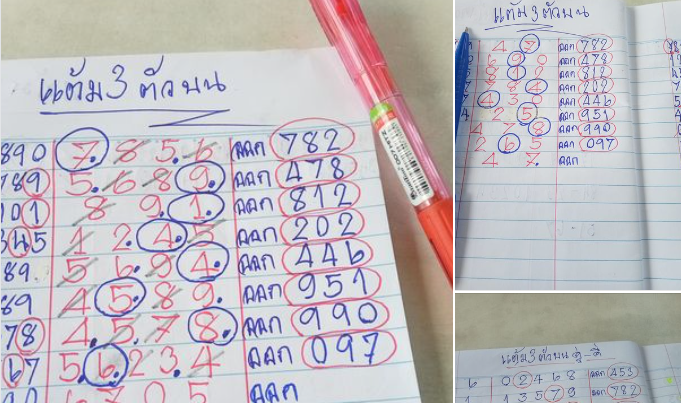 แต้ม 3 ตัวบน
890 7. 8 5. 6 ออก 782
789 5. 6 8 9. ออก 478
101 8 9. 1. ออก 812
345 1 2. 4. 5 ออก 202
89 5 6. 9 4. ออก 446
89 4 5. 8 9. ออก 951
78 4. 5. 7 8. ออก 990
67 5. 6. 2 3. 4 ออก 097
6 7 0 5 ออก
แต้ม 3 ตัวบน
4 7 ออก 782
6 9 0 ออก 478
8 1 2 ออก 812
8 4 ออก 202
4 3 0 ออก 446
2 5 ออก 951
4 7 8 ออก 990
2 6 5 ออก 097
4 7. ออก
แต้ม 3 ตัวบน คู่ - คี่
6 0 2 4 6 8 ออก 453
1 1 3 5 7 9 ออก 782